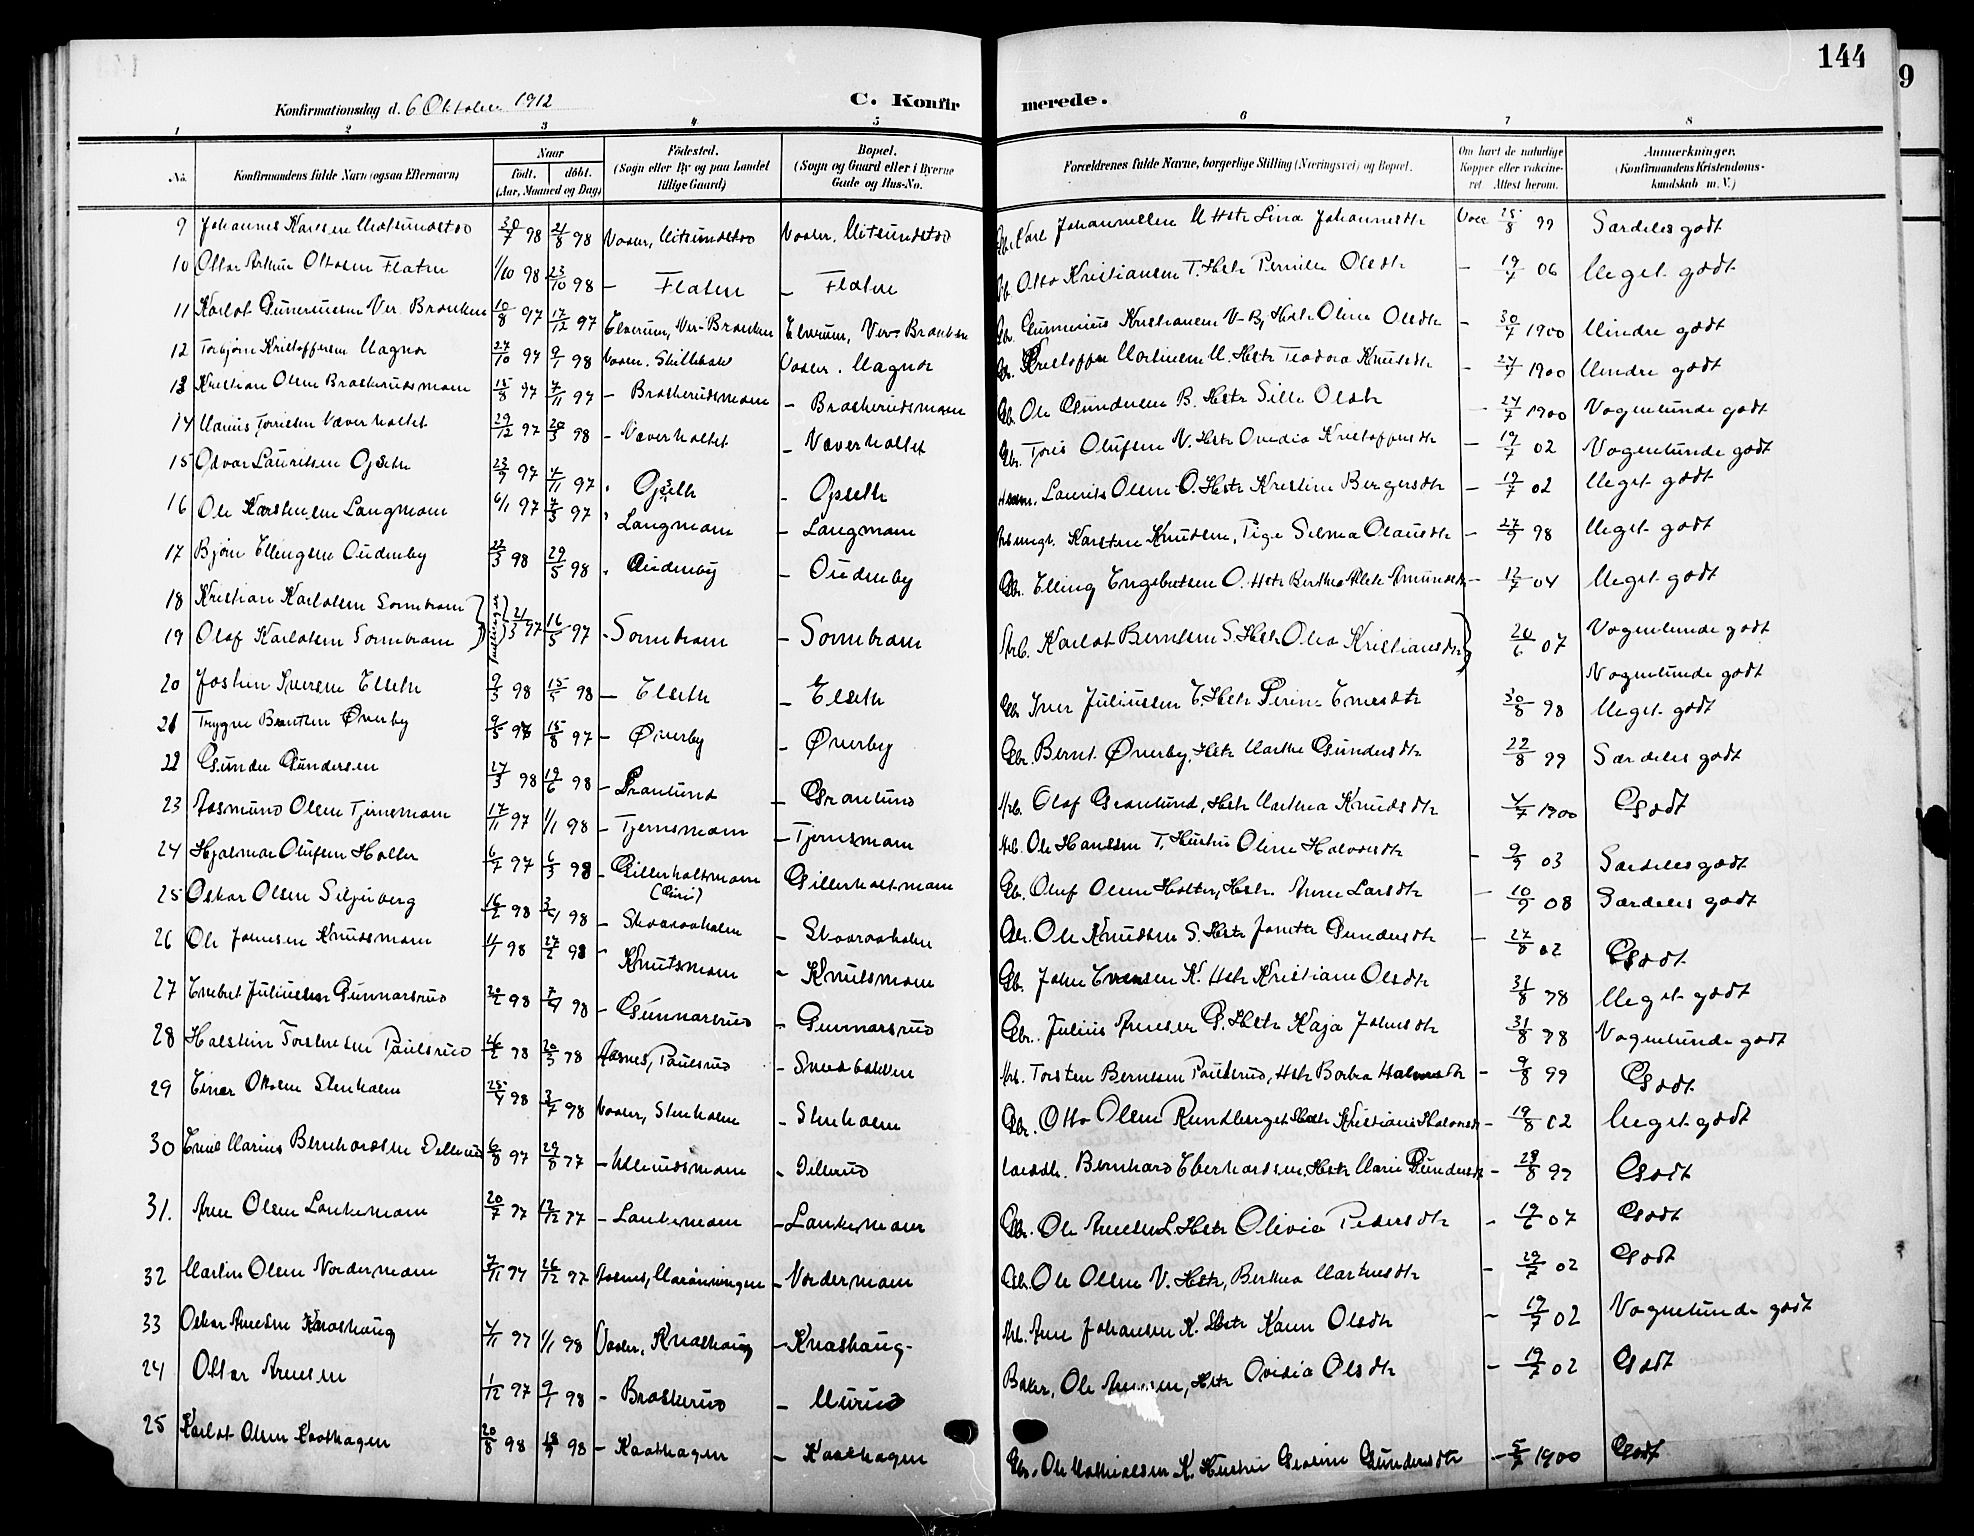 144
9
Konfirmationsdag d. 6 Oktober 1912
C. Konfirmerede.
1 2 3 4 5 6 7 8
No. Konfirmandens fulde Navn (ogsaa Efternavn) Naar født. døbt. (Aar, Maaned og Dag) Fødested. (Sogn eller By og paa Landet tillige Gaard) Bopæl. (Sogn og Gaard eller i Byerne Gade og Hus-No. Forældrenes fulde Navne, borgerlige Stilling (Næringsvei) og Bopæl. Om havt de naturlige Kopper eller vakcineret. Attest herom. Anmærkninger. (Konfirmandens Kristendomskundskab m. V.)
9 Johannes Karlsen 98 21/8 98 Vaaler, Vaaler. Karl Johannessen Hstr Lina Johannesdtr Vacc 25/8 99 Særdeles godt
10 Ottar Arthur Ottosen Flaten 1/10 98 23/10 98 - Flaten - Flaten Otto Kristiansen F. Hstr Pernille Olsdtr - 19/7 06 Meget godt
11 Karlot Gunerusen Ver. Brænken 10/8 97 17/12 97 Elverum, Ver-Brænken Elverum, Ver-Brænken Gbr. Gunnerius Kristiansen V-B, Hstr Oline Olsdtr - 30/7 1900 Mindre godt
12 Torbjørn Kristoffersen Magnor 27/10 97 9/1 98 Vaaler. Vaaler. Magnor Kristoffer Martinsen M. Hstr Teodora Knudsdtr - 27/7 1900 Mindre godt
13 Kristian Olsen Braskerudsmoen 15/8 97 7/11 97 - Braskerudsmoen - Braskerudsmoen Gbr. Ole Gundersen B. Hstr Sille Olsdtr - 27/7 1900 Nogenlunde godt
14 Marius Tørrisen Næverholtet 29/12 97 20/3 98 - Næverholtet - Næverholtet Gbr. Tøris Olufsen N. Hstr Ovidia Kristoffersdtr - 19/7 02 Nogenlunde godt
15 Odvar Lauritsen Opseth 23/9 97 7/11 97 Opseth - Opseth Laurits Olsen O. Hstr Kristine Bergersdtr - 19/7 02 Meget godt
16 Ole Karstensen Langmoen 6/1 97 7/3 97 Langmoen - Langmoen Karsten Knudsen, Pige Selma Olausdtr - 98 Meget godt
17 Bjørn Ellingsen Oudenby 22/3 98 29/5 98 Oudenby - Oudenby Gbr. Elling Engebretsen O. Hstr Berthe Amundsdtr - 12/7 04 Meget godt
18 Kristian Karlotsen Sormbroen
19 Olaf Karlotsen Sormbroen 21/3 97 16/5 97 - Sormbroen - Sormbroen Arb. Karlot Berntsen S. Hstr Olea Kristiansdtr 20/6 07 Nogenlunde godt
Nogenlunde godt
20 Jostein Iversen Elseth 9/3 98 15/5 98 - Elseth - Elseth Gbr Iver Juliussen E. Hstr Perine Enersdtr 30/8 98 Meget godt
21 Trygve Berntsen Øverby 9/5 97 15/8 97 - Øverby - Øverby Gbr. Bernt Øverby, Hstr Marthe Gundersdtr 22/8 99 Særdeles godt
22 Gunder Gundersen 27/3 98 19/6 98 - Granlund - Granlund Arb. Olaf Granlund, Hstr Martha Knudsdtr 7/7 1900 Godt
23 Aasmund Olsen Tjernsmoen 17/11 97 1/1 98 - Tjernsmoen - Tjernsmoen Arb. Ole Hanssen T. Hustru Oline Halvorsdtr - 9/9 03 Særdeles godt
24 Hjalmar Olufsen Holter 6/7 97 6/3 98 - Gillerholtsmoen Gillerholtsmoen Gbr. Oluf Olsen Holter, Hstr. Anne Larsdtr - 10/9 08 Særdeles godt
25 Oskar Olsen Seljeberg 16/2 98 98 - Skaaraaholen - Skaaraaholen Gbr. Ole Knudsen S. Hstr Janette Gundersdtr - 27/8 02 Godt
26 Ole Johnsen Knudsmoen 98 27/2 98 - Knutsmoen - Knutsmoen Gbr. John Evensen K. Hstr Kristiane Olsdtr 31/8 98 Meget godt
27 Enebret Juliussen Gunnarsrud 20/2 98 98 - Gunnarsrud - Gunnarsrud Gbr. Julius Arnesen G. Hstr Kaja Johnsdtr 31/8 98 Nogenlunde godt
28 Halstein Torstensen Paulsrud 98 20/3 98 Aasnes, Paulsrud - Snedbakken Arb. Torsten Berntsen Paulsrud, Hstr Barbra Halvorsdtr - 9/8 99 Godt
29 Einar Ottosen Stenholm 25/4 98 3/7 98 Vaaler, Stenholm - Stenholm Gbr. Otto Olsen Rundberget Hstr Kristiane Halvorsdtr - 19/8 02 Meget godt
30 Emil Marius Bernhardsen Dellerud 6/8 97 29/8 97 - - Dellerud Bernhard Eberhardsen, Hstr Marie Gundersdtr - 28/8 99 Godt
31. Arne Olsen Laukemoen 20/7 97 12/12 97 - Laukemoen - Laukemoen Gbr. Ole Arnesen L. Hstr Olivia Pedersdtr - 19/6 07 Godt
32 Martin Olsen Nordermoen 7/11 97 26/12 97 Aasnes, - Nordermoen Gbr. Ole Olsen N. Hstr, Berthea Martinsdtr - 29/7 02 Godt
33 Oskar Arnesen Knashaug 7/11 97 1/1 98 Vaaler, Knashaug - Knashaug. Arb. Arne Johansen K. Hstr Karen Olsdtr - 19/7 02 Nogenlunde godt
24 Ottar Arnesen 1/12 97 9/1 98 - Braskerud - Murud Baker, Ole Arnesen, Hstr Ovidia Olsdtr - 19/7 02 Godt
25 Karlot Olsen Kaathagen 20/8 98 18/9 98 - Kaathagen - Kaathagen Gbr. Ole Mathiassen K. Hustru Gudersdtr - 5/7 1900 Godt